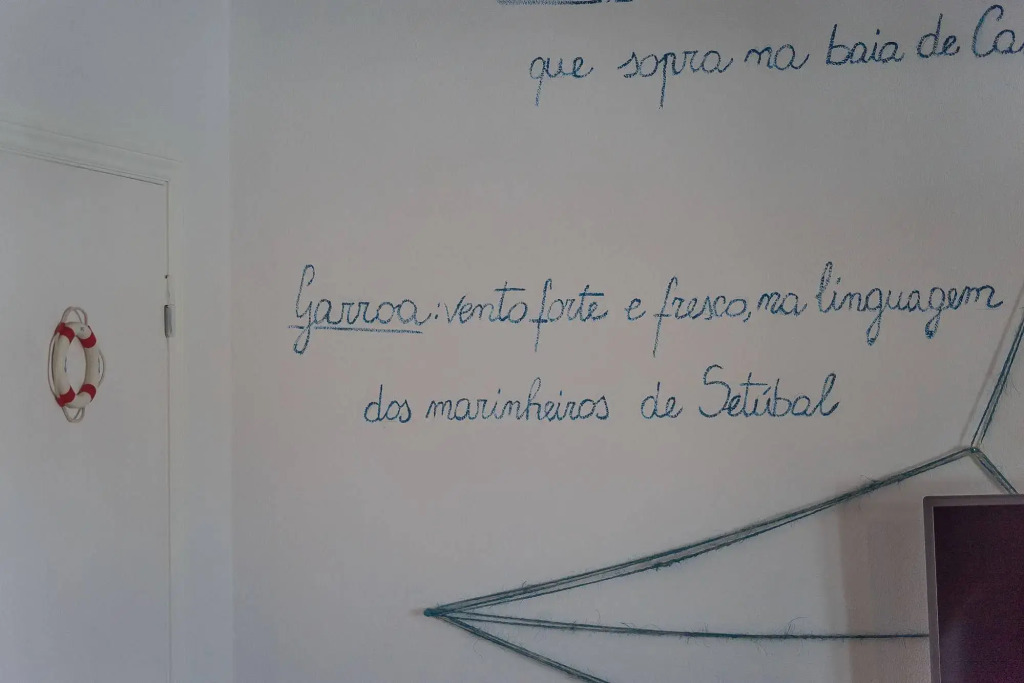 que sopra na baia de Ca
Garroa: vento forte e fresco, na linguagem
dos marinheiros de Setúbal